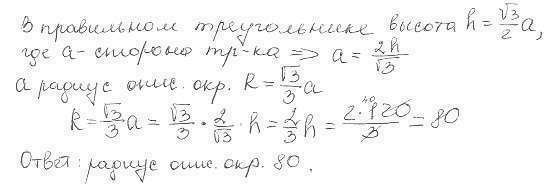 В правильном треугольнике высота h = √3/2 a,
где a - сторона тр-ка => a = 2h/√3
а радиус опис. окр. R = √3/3 a
R = √3/3 a = √3/3 · 2/√3 · h = 2/3 h = 2·120/3 = 80
40
Ответ: радиус опис. окр. 80.